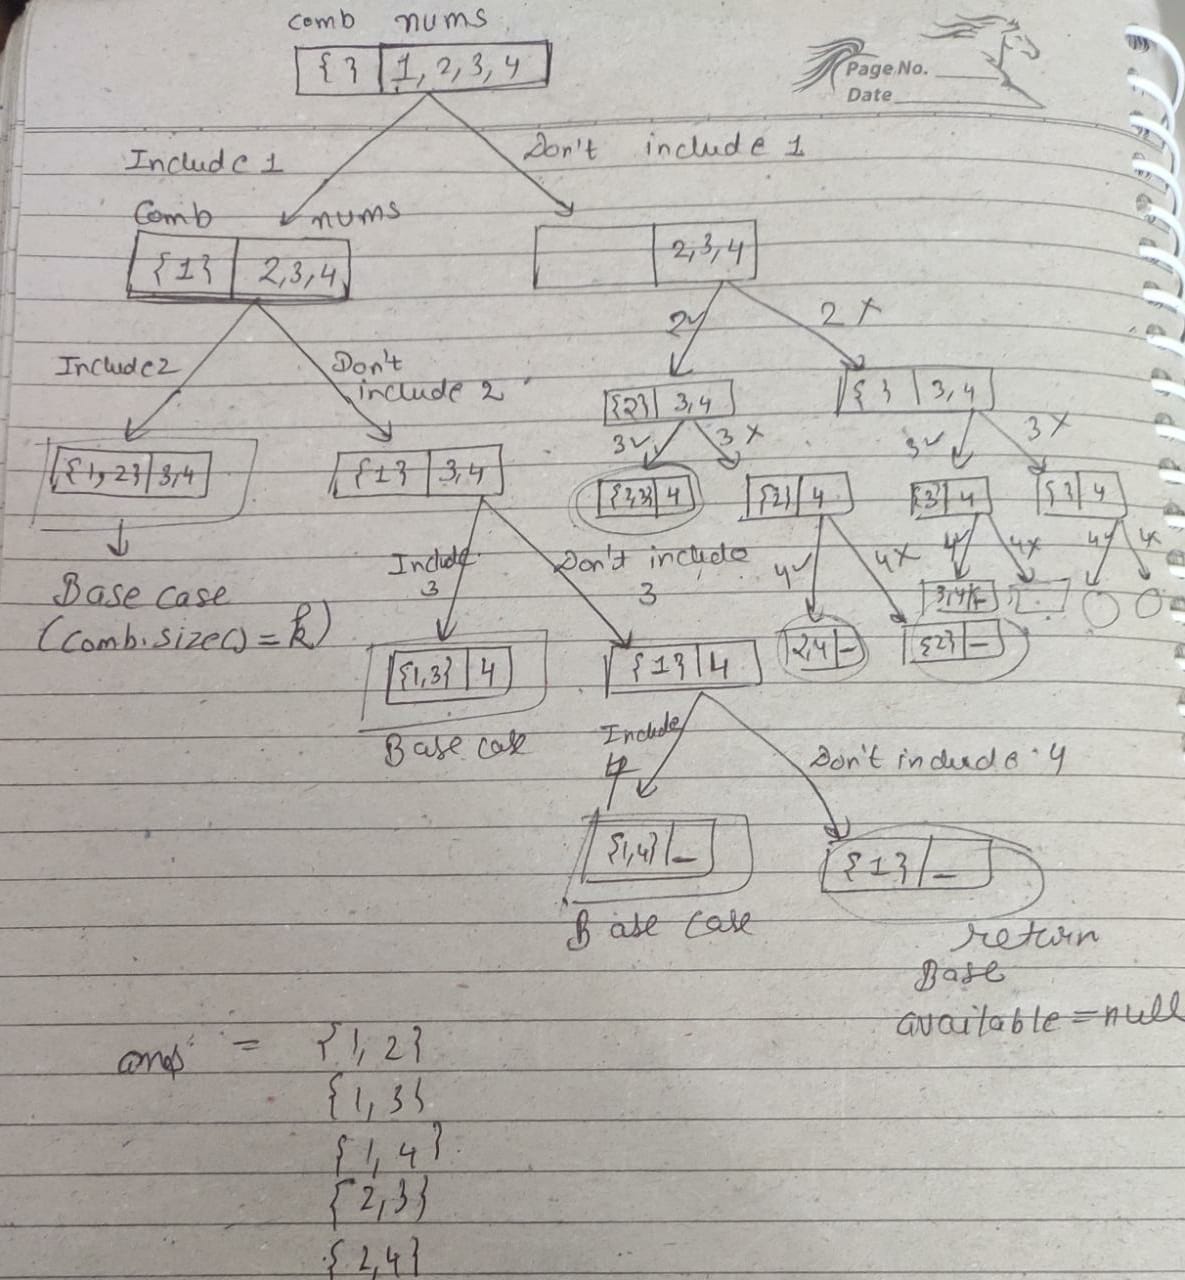 comb nums
{ } 1, 2, 3, 4
Page No.
Date
Include 1
Don't include 1
Comb nums
{1} 2,3,4
2,3,4
2✓
2 ×
Include 2
Don't
include 2
{2} 3,4
{ } 3,4
3✓
3 ×
3✓
3 ×
{1, 2} 3,4
{1} 3,4
{2,3} 4
{2} 4
{3} 4
{ } 4
Include
3
Don't include
3
4✓
4×
4✓
4×
4✓
4×
Base case
(comb.size() = k)
3,4 -
2,4 -
{2} -
{1,3} 4
{1} 4
Base case
Include
4
Don't include 4
{1,4} _
{1} _
Base case
return
Base
available = null
ans = {1, 2}
{1, 3}
{1, 4}
{2, 3}
{2, 4}